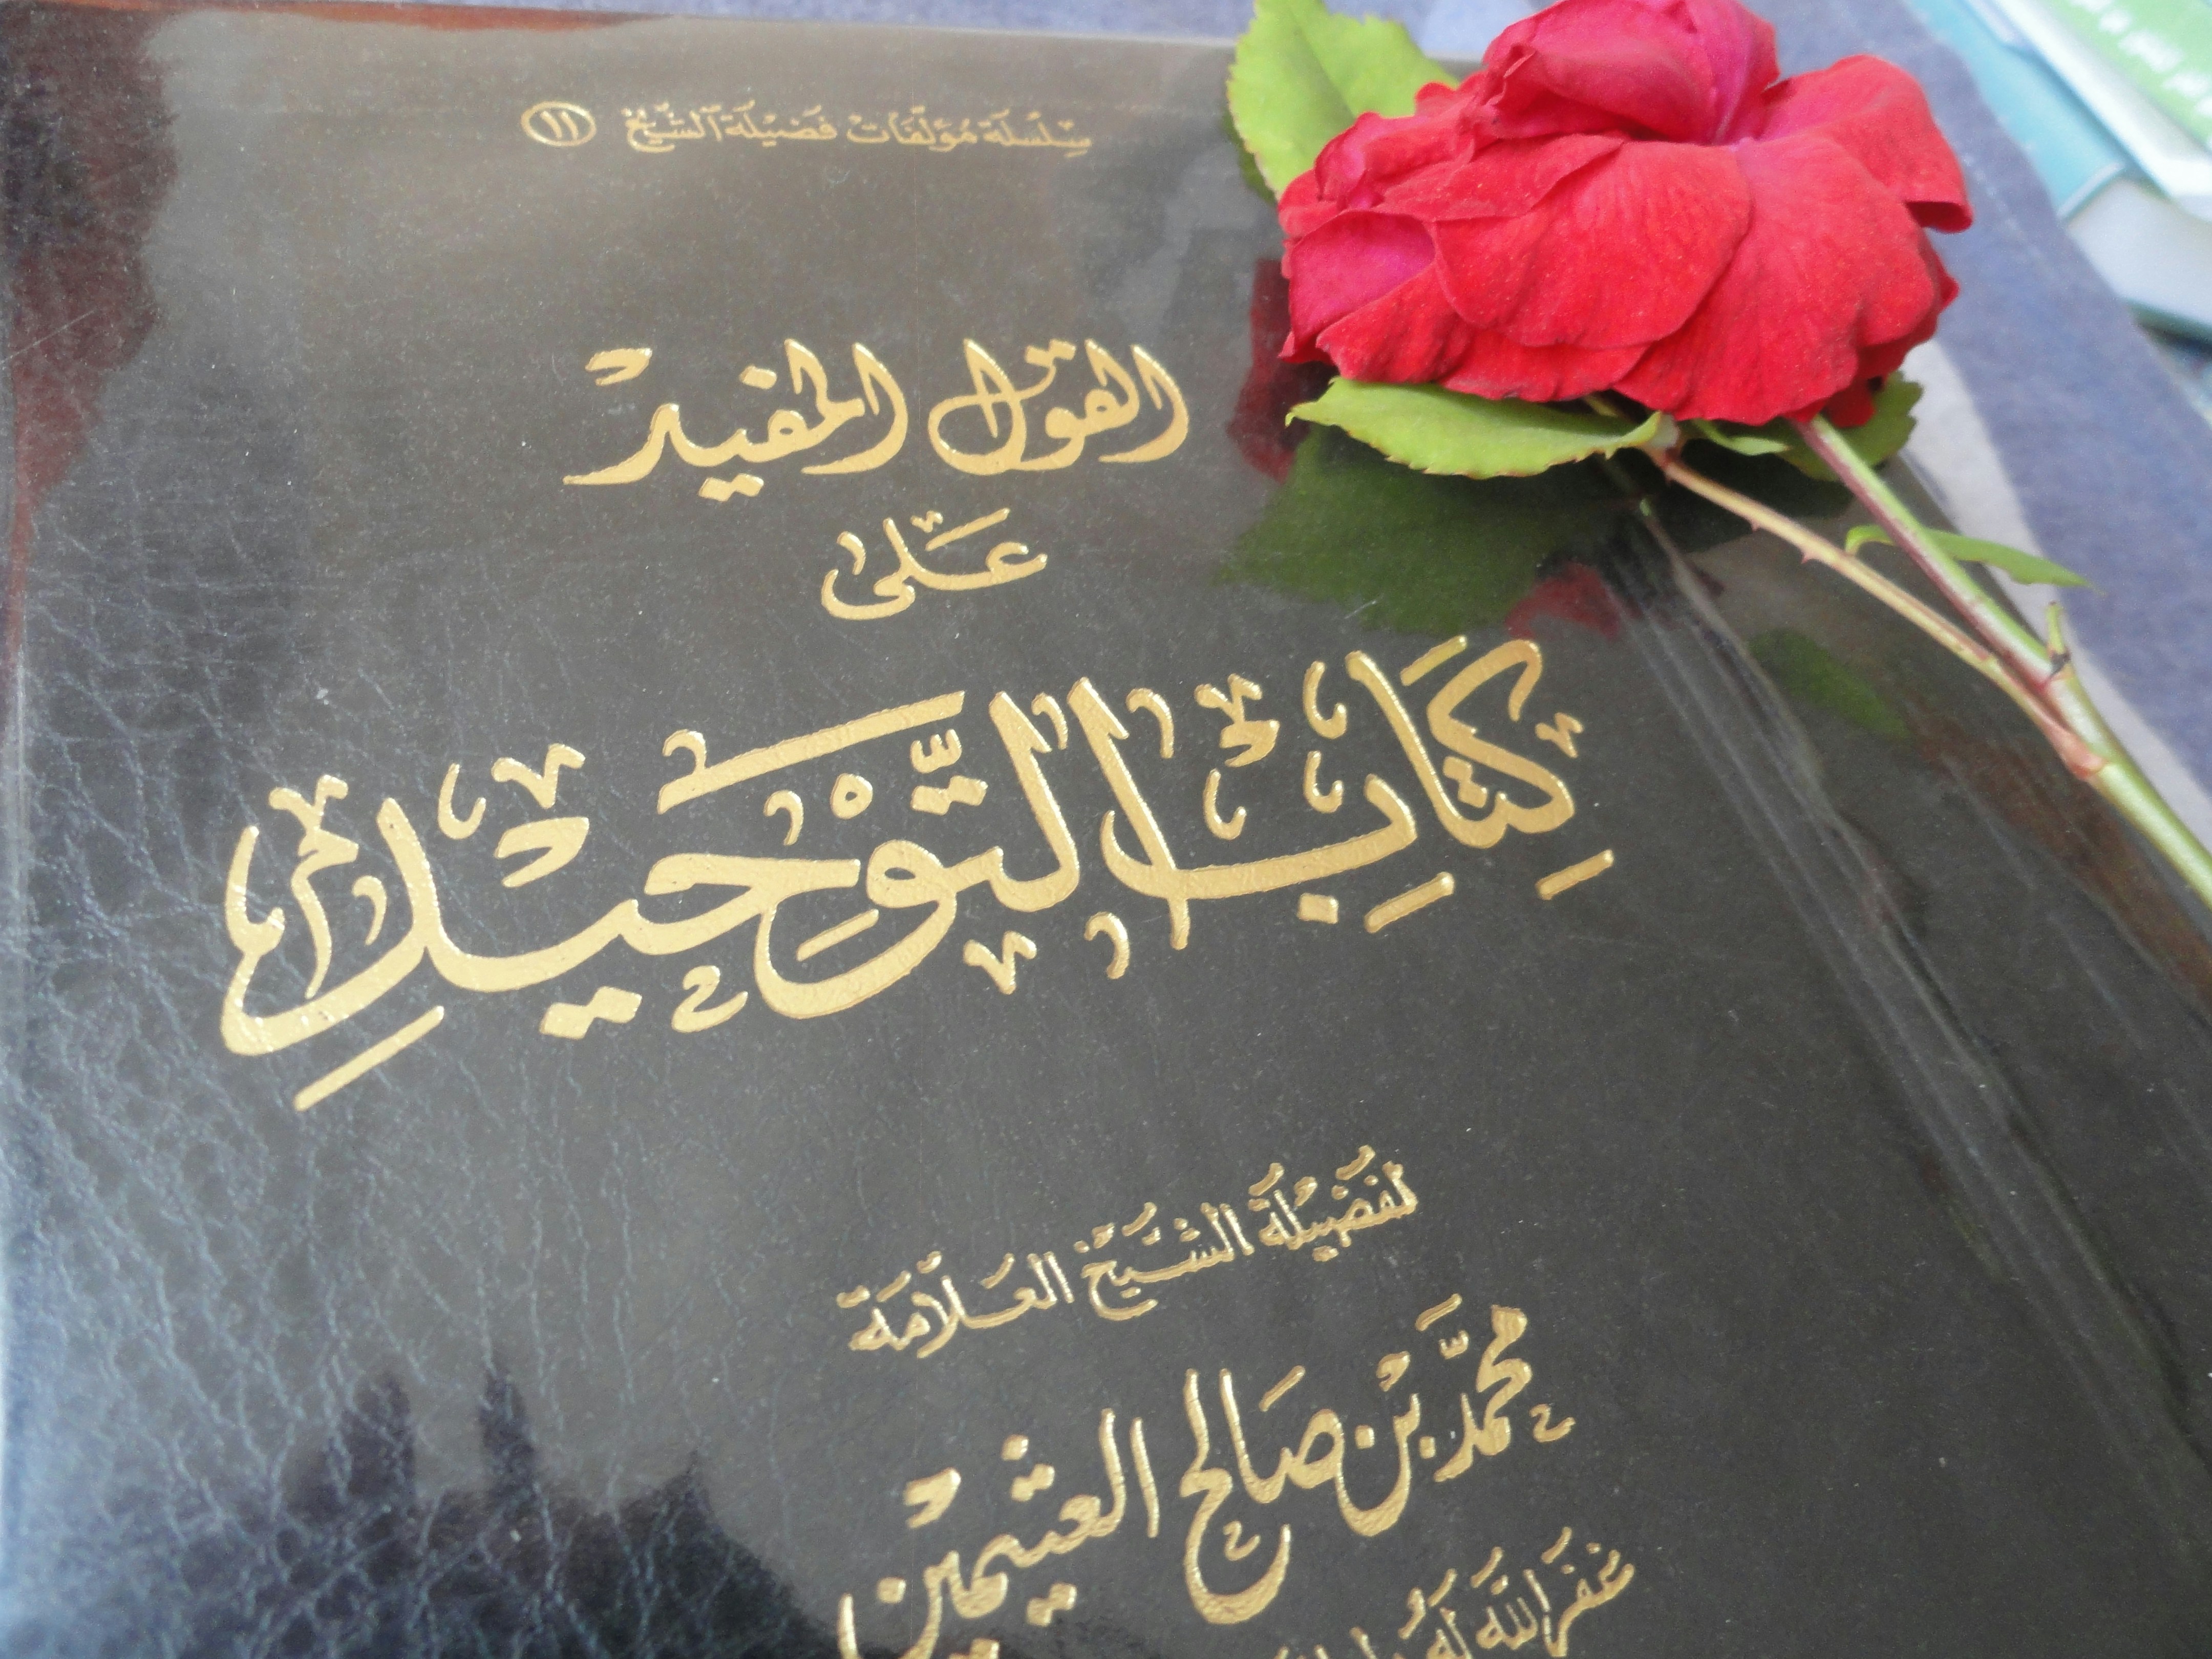 سِلْسِلَة مُؤَلَّفَات فَضِيْلَة الشَّيْخ (١١)
القول المفيد
عَلَى
كِتَابِ التَّوْحِيدِ
لفَضِيْلَة الشَّيْخ العَلَّامَة
محمَّد بْن صَالح العثيمين
غَفَرَ اللَّه لَهُ